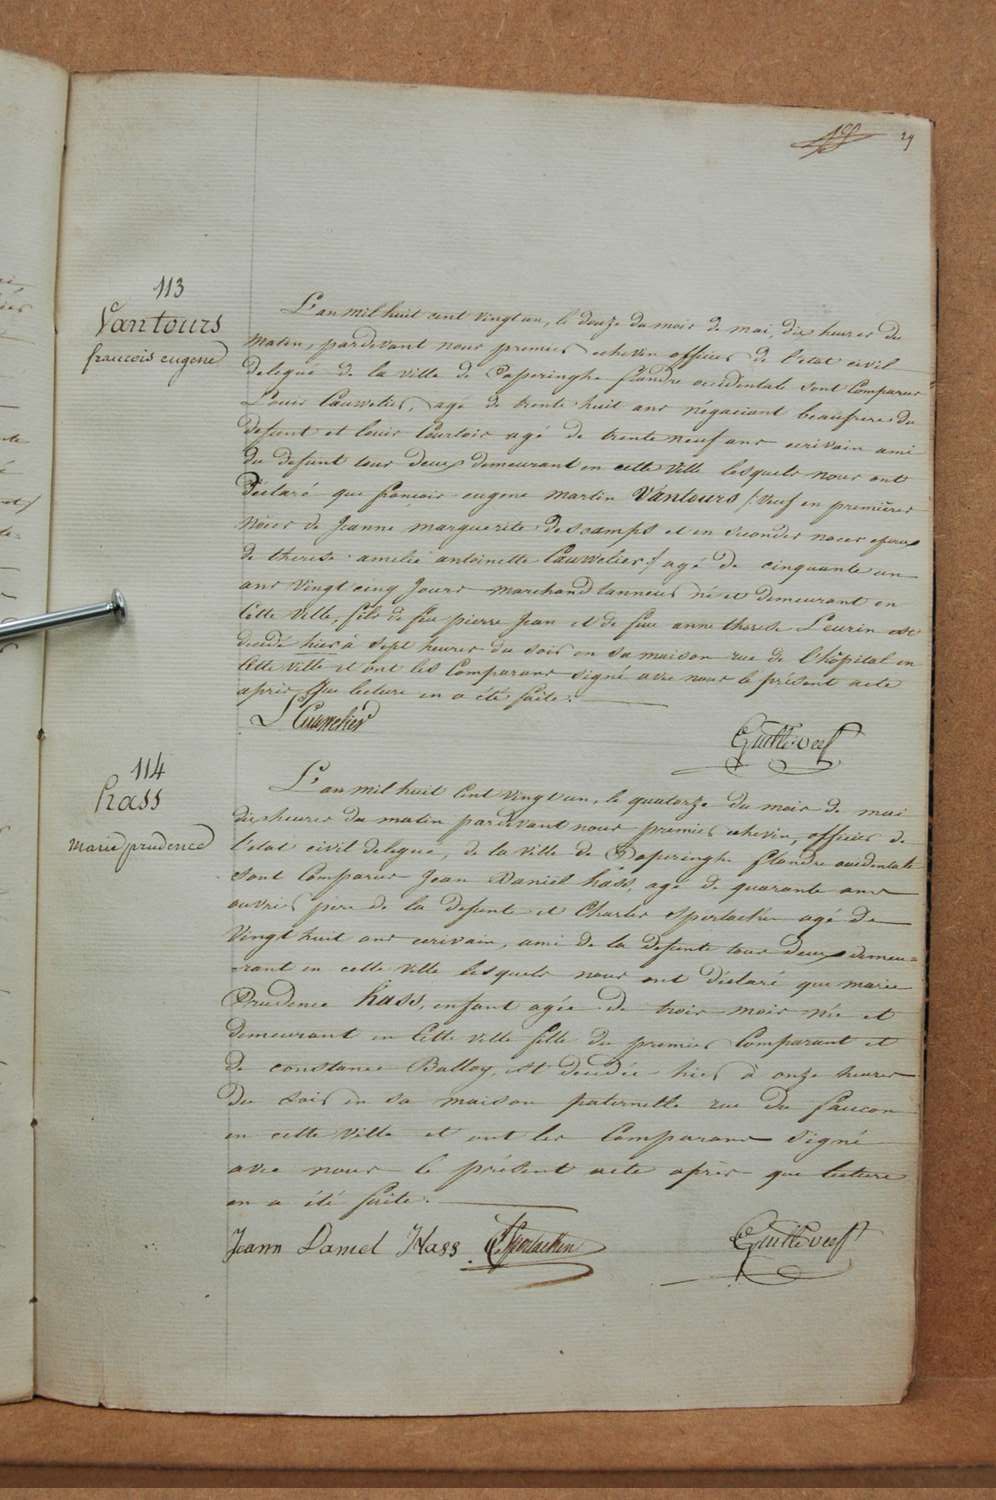 29
113
Vantours
francois eugene
L'an mil huit cent vingt un, le douze du mois de mai, dix heures du
matin, pardevant nous premier echevin officier de l'etat civil
delegué de la ville de Poperinghe flandre occidentale sont comparus
Louis Cauwelier, agé de trente huit ans négociant beaufrere du
defunt et louis Courtois agé de trente neuf ans ecrivain ami
du defunt tous deux demeurant en cette ville lesquels nous ont
déclaré que françois eugene martin Vantours /: veuf en premières
nôces de Jeanne marguerite descamps et en secondes noces epoux
de therese amelie antoinette Cauwelier :/ agé de cinquante un
ans vingt cinq jours marchand tanneur né et demeurant en
cette ville, fils de feu pierre Jean et de feue anne therese Leurin est
decedé hier à sept heures du soir en sa maison rue de l'hôpital en
cette ville et ont les comparans signé avec nous le présent acte
après que lecture en a été faite.
L Cauwelier
114
hass
marie prudence
L'an mil huit cent vingt un, le quatorze du mois de mai
dix heures du matin pardevant nous premier echevin, officier de
l'etat civil delegué, de la ville de Poperinghe flandre occidentale
sont comparus Jean Daniel hass agé de quarante ans
ouvrier père de la defunte et Charles Sperlaeken agé de
vingt huit ans ecrivain, ami de la defunte tous deux demeu=
=rant en cette ville lesquels nous ont déclaré que marie
Prudence hass, enfant agée de trois mois née et
demeurant en cette ville fille du premier comparant et
de constance Balloy, est decedée hier à onze heures
du soir en sa maison paternelle rue du faucon
en cette ville et ont les comparans signé
avec nous le présent acte après que lecture
en a été faite.
Jeann Daniel Hass